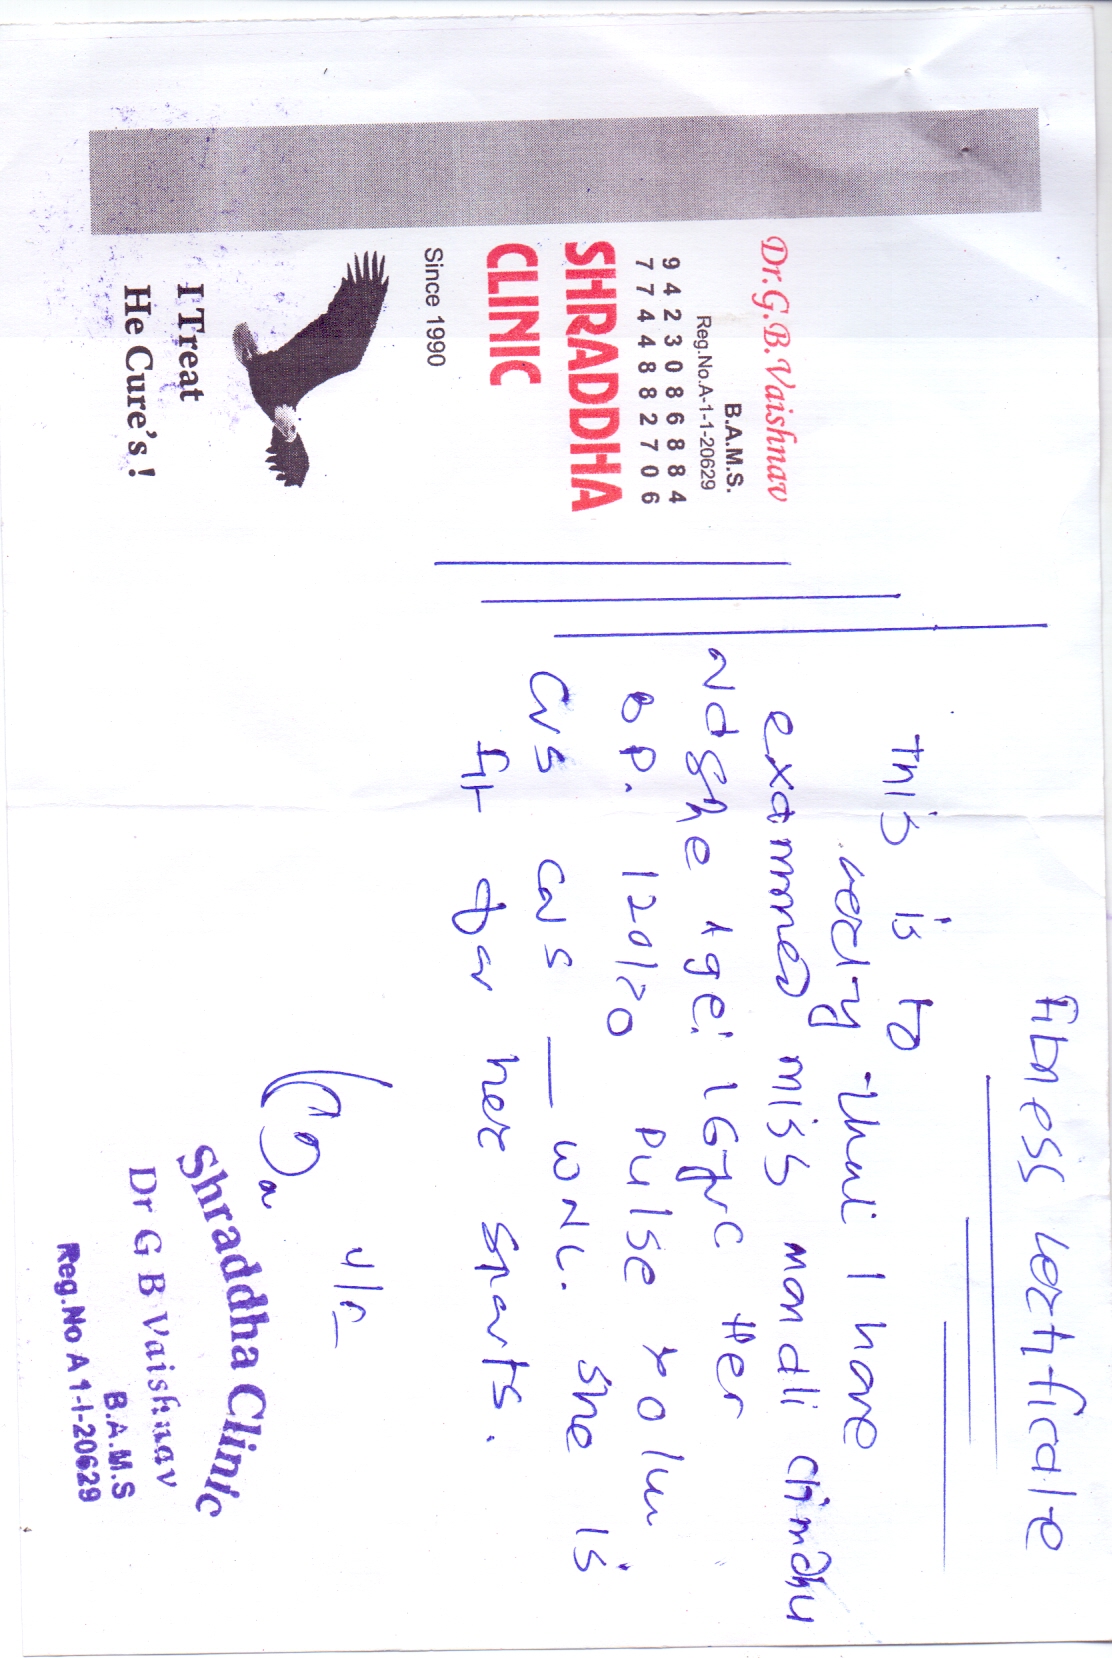 Dr.G.B.Vaishnav
B.A.M.S.
Reg.No.A-1-1-20629
9423086884
7744882706
SHRADDHA
CLINIC
Since 1990
I Treat
He Cure's !
Fitness Certificate
This is to
certify that I have
examined miss mandli
Naghe Age: 16yrc Her
BP. 120/70 pulse 70/m
CVS CNS — WNL. She is
fit for her sports.
Shraddha Clinic
Dr G B Vaishnav
B.A.M.S
Reg.No A 1-1-20629